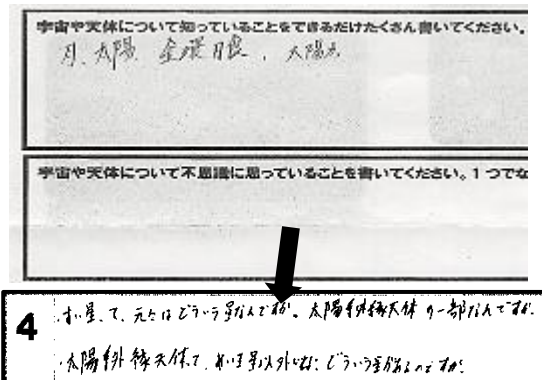 宇宙や天体について知っていることをできるだけたくさん書いてください。
月、太陽 金環日食、太陽系
宇宙や天体について不思議に思っていることを書いてください。1つでな
4
めい王星って、元々はどういう星なんですか。太陽系外縁天体の一部なんですか。
太陽系外縁天体って、めい王星以外には、どういう星があるのですか。